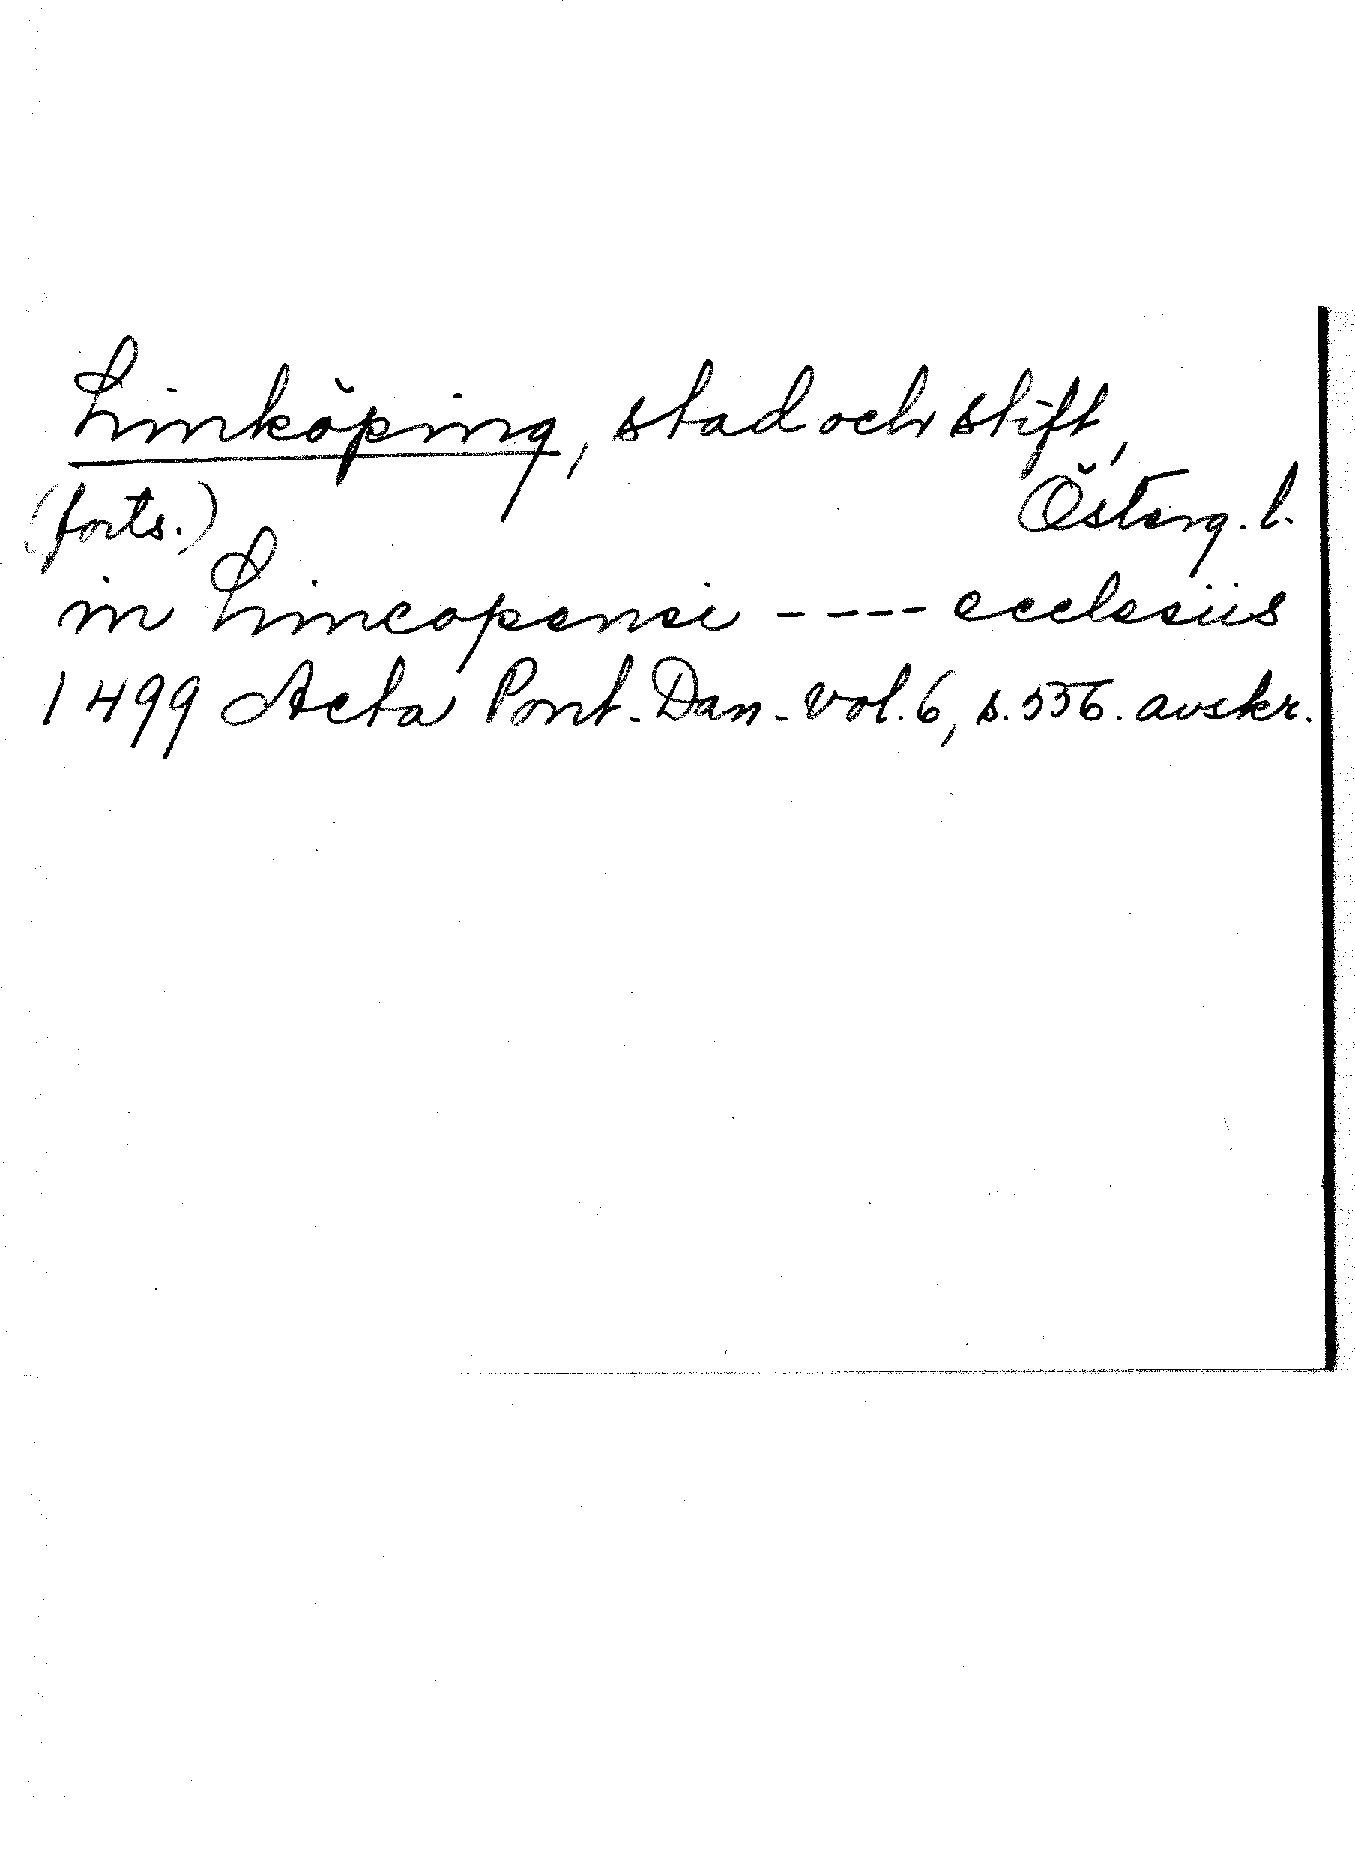 Linköping, stad och stift,
(forts.) Österg. l.
in Lincopensi ---- ecclesiis
1499 Acta Pont. Dan. vol. 6, s. 556. avskr.